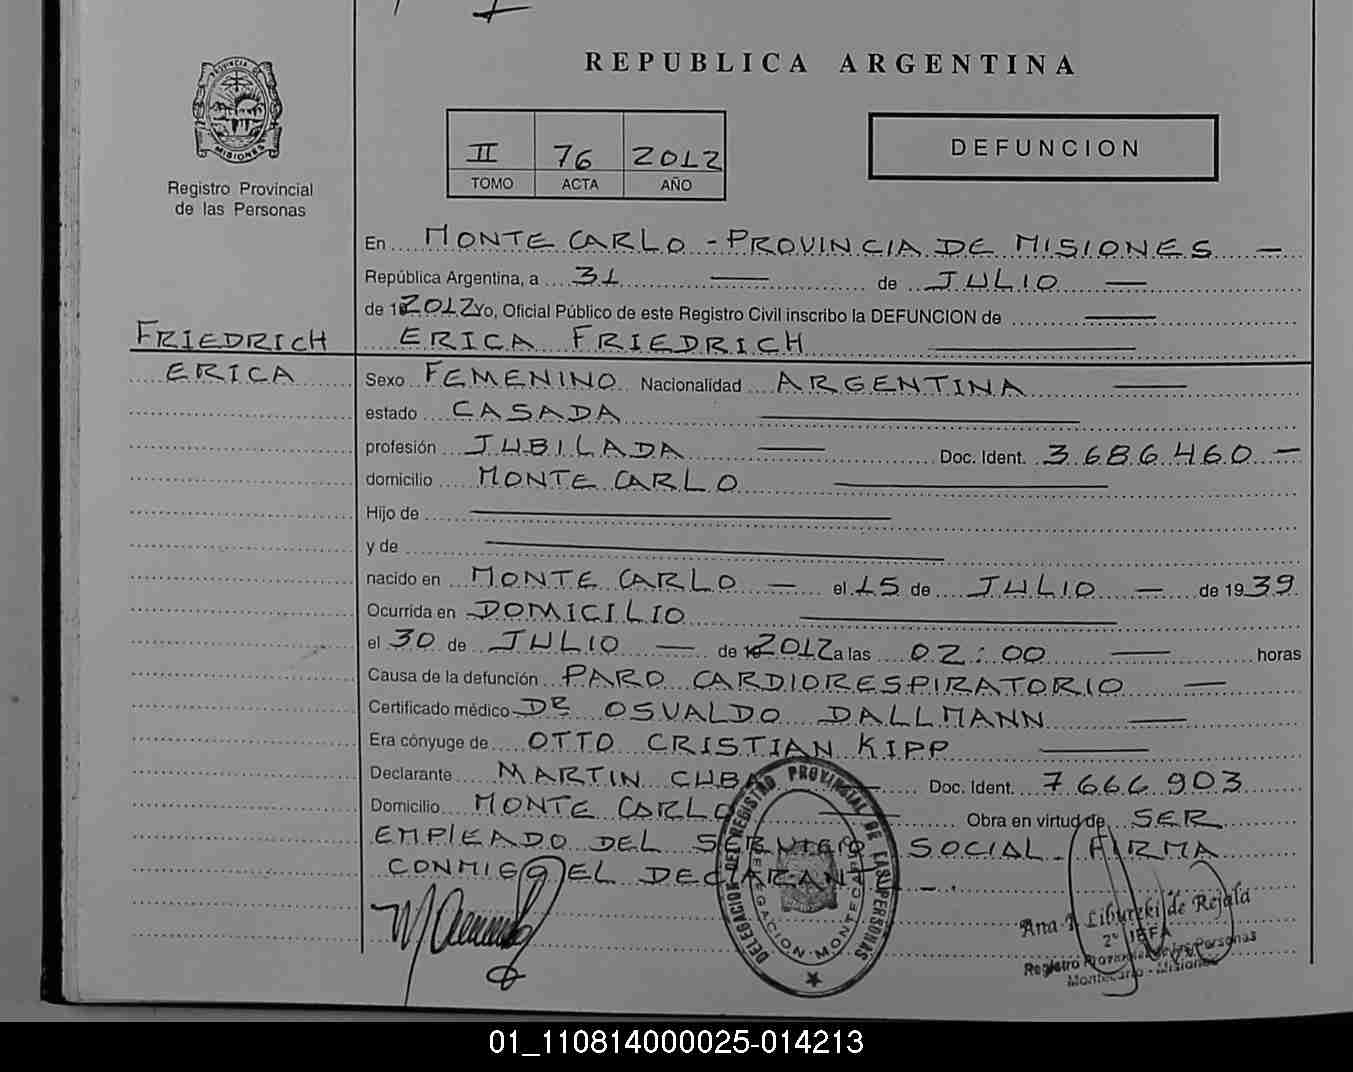 REPUBLICA ARGENTINA
PROVINCIA DE
MISIONES
Registro Provincial
de las Personas
II 76 2012
TOMO ACTA AÑO
DEFUNCION
En MONTE CARLO - PROVINCIA DE MISIONES —
República Argentina, a 31 — de JULIO —
de 2012 Yo, Oficial Público de este Registro Civil inscribo la DEFUNCION de —
FRIEDRICH
ERICA
ERICA FRIEDRICH —
Sexo FEMENINO Nacionalidad ARGENTINA —
estado CASADA —
profesión JUBILADA — Doc. Ident. 3.686.460 —
domicilio MONTE CARLO —
Hijo de —
y de —
nacido en MONTE CARLO — el 15 de JULIO — de 1939.
Ocurrida en DOMICILIO —
el 30 de JULIO — de 2012 a las 02:00 — horas
Causa de la defunción PARO CARDIORESPIRATORIO —
Certificado médico DR OSVALDO DALLMANN —
Era cónyuge de OTTO CRISTIAN KIPP —
Declarante MARTIN CUBA — Doc. Ident. 7.666.903
Domicilio MONTE CARLO — Obra en virtud de SER
EMPLEADO DEL SERVICIO SOCIAL. FIRMA
CONMIGO EL DECLARANTE — .
DELEGACION DEL REGISTRO PROVINCIAL DE LAS PERSONAS
DELEGACION MONTECARLO
Ana Libutzki de Rejala
2º JEFA
Registro Provincial de las Personas
Montecarlo - Misiones
01_110814000025-014213